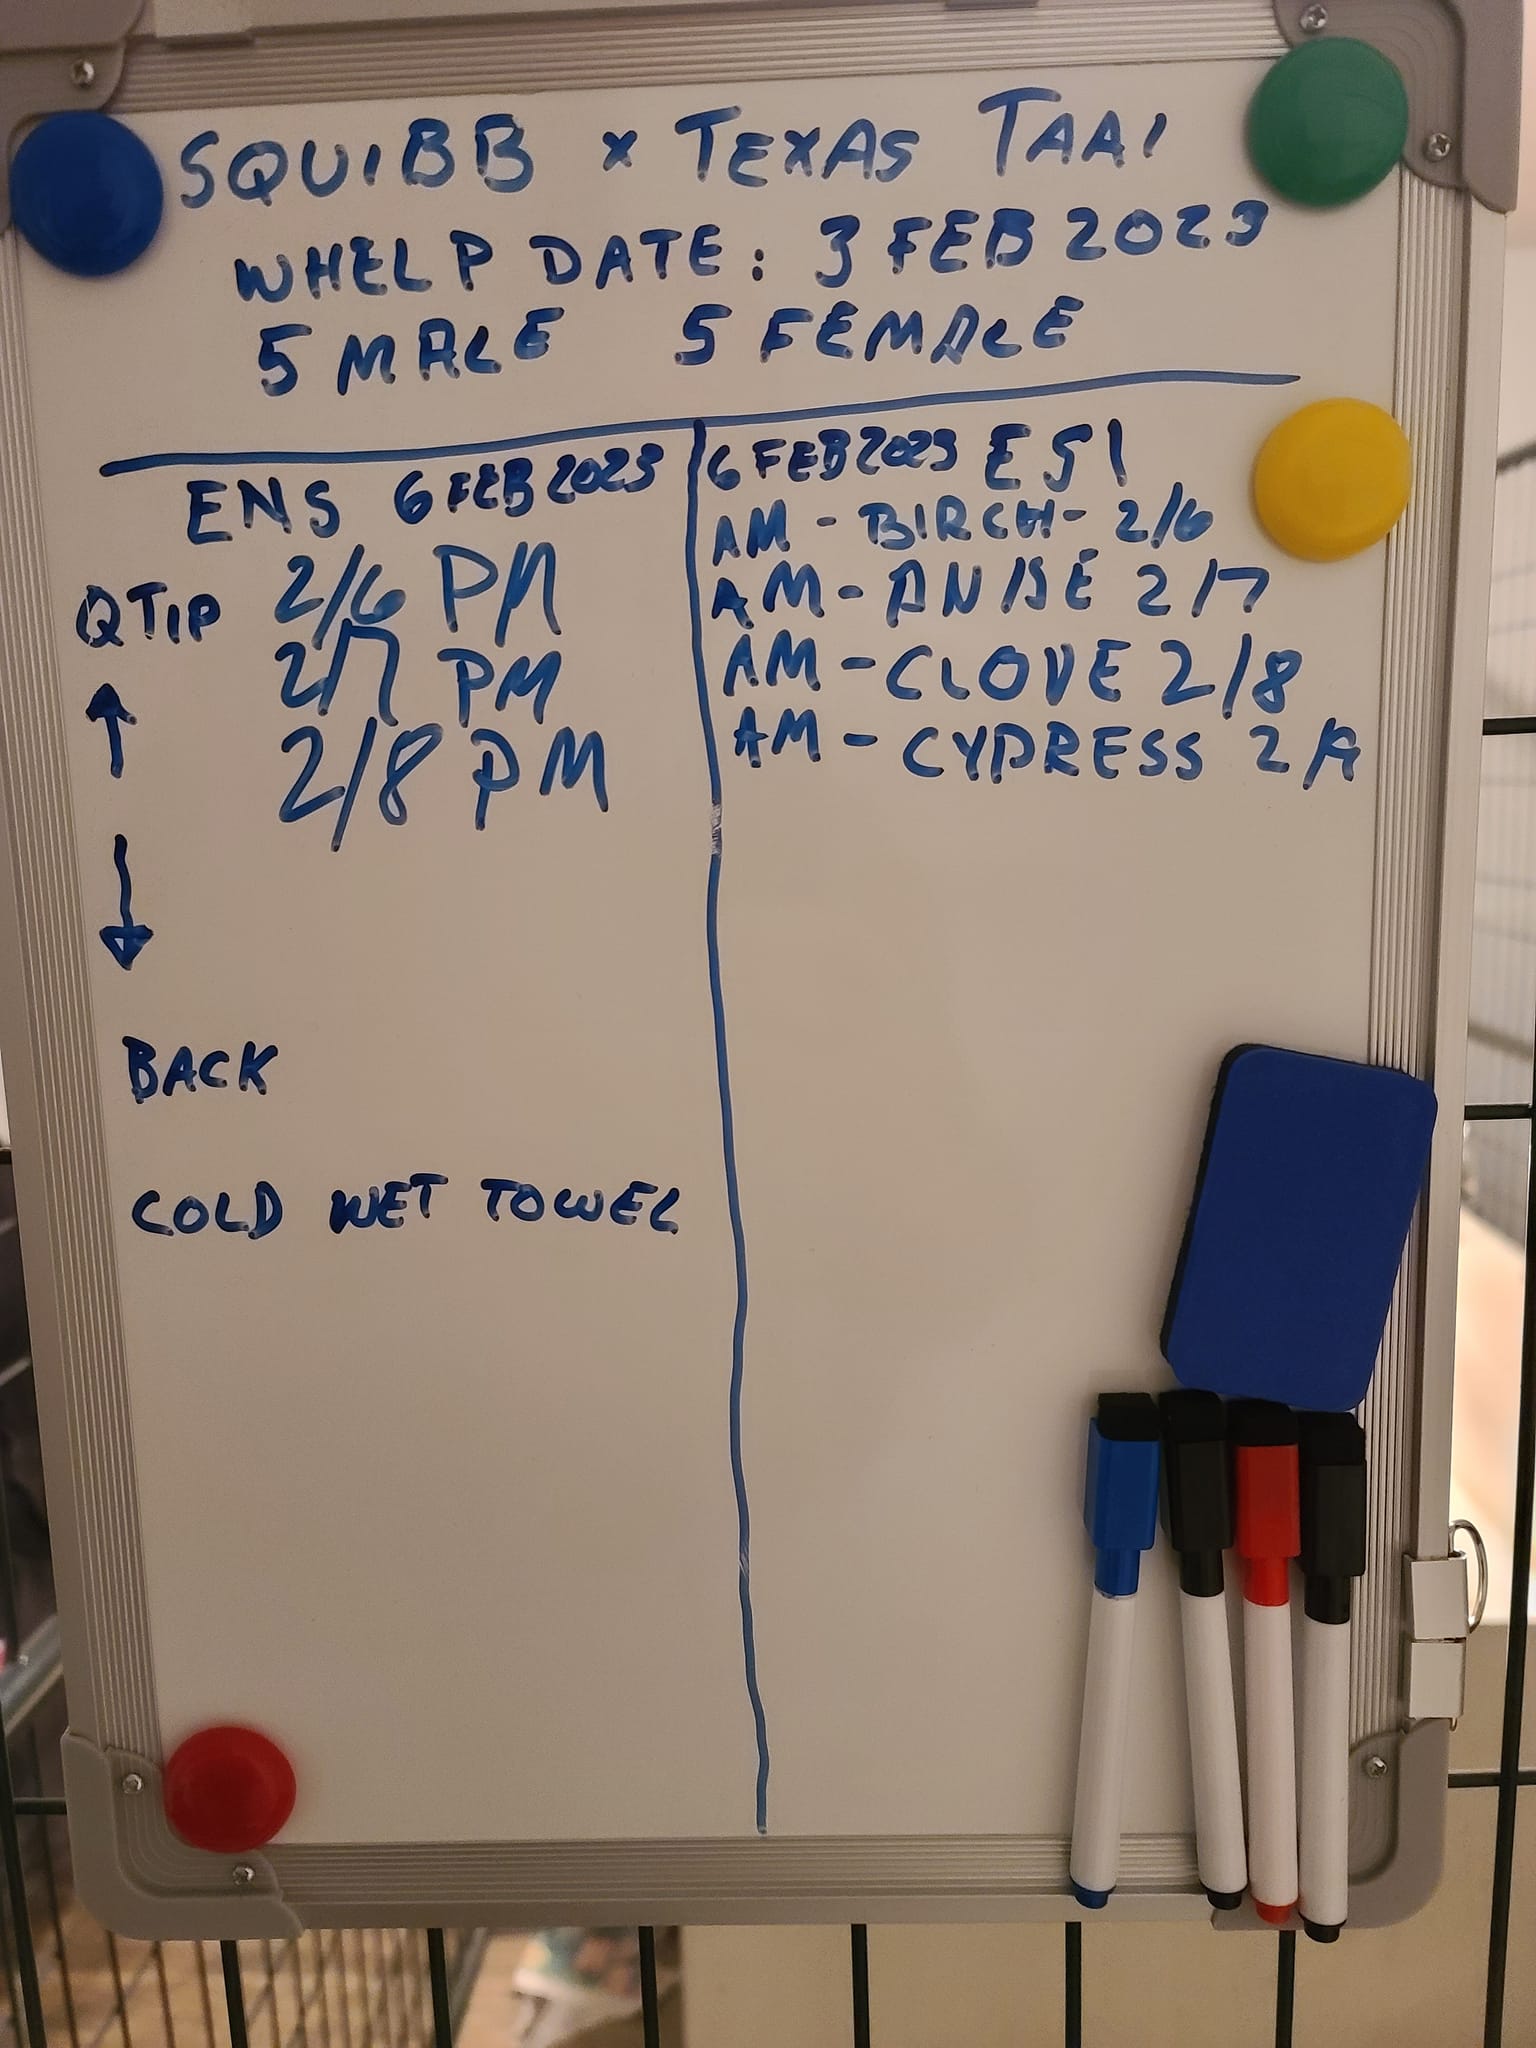 SQUIBB x TEXAS TAAI
WHELP DATE: 3 FEB 2023
5 MALE 5 FEMALE
ENS 6 FEB 2023
QTIP 2/6 PM
2/7 PM
↑
2/8 PM
↓
BACK
COLD WET TOWEL
6 FEB 2023 ESI
AM - BIRCH - 2/6
AM - ANISE 2/7
AM - CLOVE 2/8
AM - CYPRESS 2/9